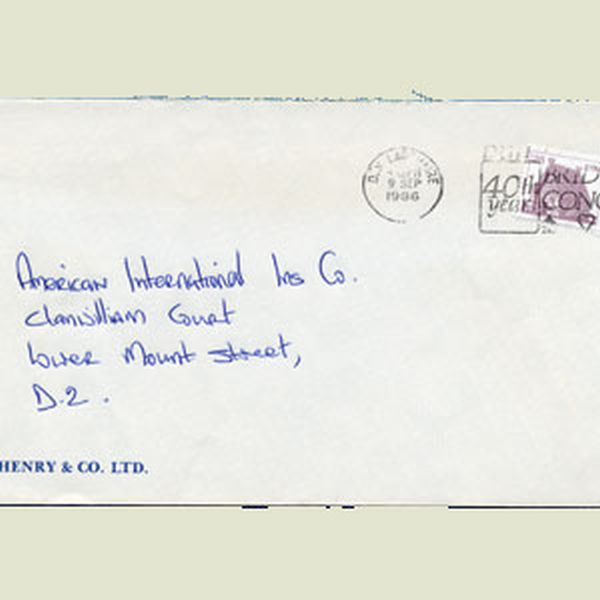 9 SEP
1986
40th
year
BRID
CONG
American International Ins Co.
Clanwilliam Court
Lower Mount Street,
D.2.
HENRY & CO. LTD.